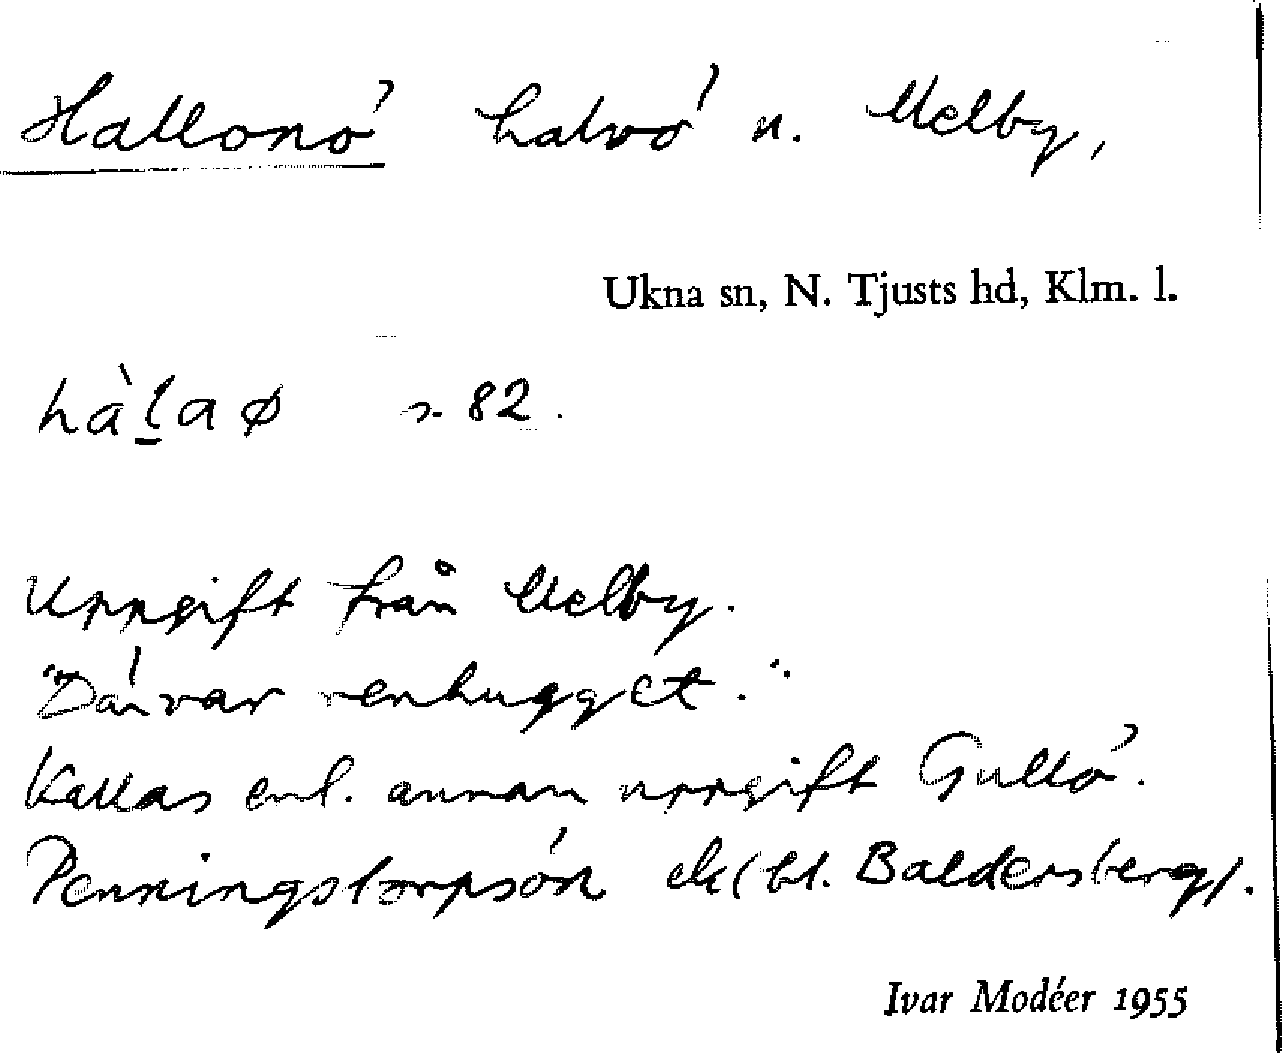 Hallonö halvö n. Melby,
Ukna sn, N. Tjusts hd, Klm. l.
hàl̲aø s. 82.
Uppgift från Melby.
"Dän var renhugget."
Kallas enl. annan uppgift Gullö.
Penningstorpsön ek (bl. Baldersberg).
Ivar Modéer 1955